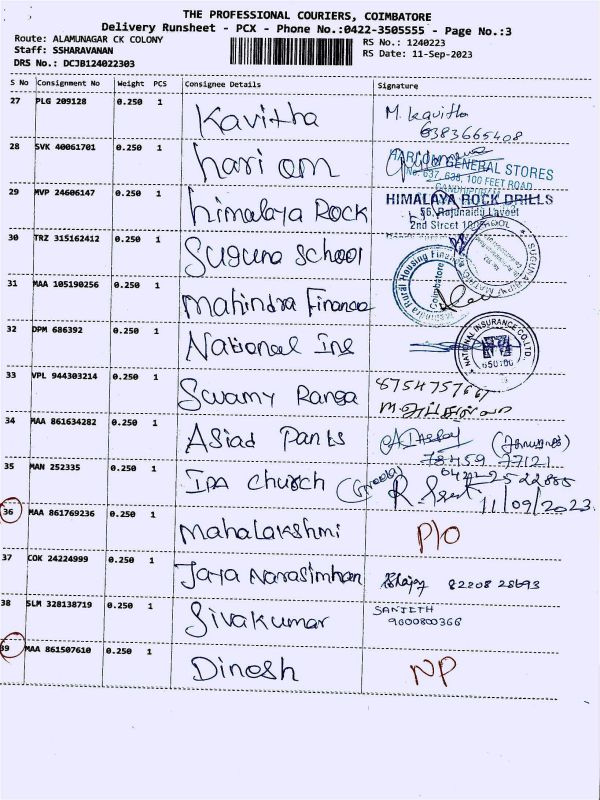 THE PROFESSIONAL COURIERS, COIMBATORE
Delivery Runsheet - PCX - Phone No.:0422-3505555 - Page No.:3
Route: ALAMUNAGAR CK COLONY
RS No.: 1240223
Staff: SSHARAVANAN
RS Date: 11-Sep-2023
DRS No.: DCJB124022303
S No Consignment No Weight PCS Consignee Details Signature
27 PLG 209128 0.250 1 Kavitha M. Kavitha
6383665408
28 SVK 40061701 0.250 1 hari om
GENERAL STORES
No. 637, 638, 100 FEET ROAD
GANDHIPURAM
29 MVP 24606147 0.250 1 himalaya Rock HIMALAYA ROCK DRILLS
56, Rajunaidu Layout
2nd Street
30 TRZ 315162412 0.250 1 Suguna School
31 MAA 105190256 0.250 1 mahindra Finance
Rural Housing Finance
Coimbatore
32 DPM 686392 0.250 1 National Ins
NATIONAL INSURANCE CO.LTD.
650100
33 VPL 944303214 0.250 1 Swamy Ranga 8754757667
34 MAA 861634282 0.250 1 Asiad Pants
78459 77121
35 MAN 252335 0.250 1 IPA church
0422-2522885
11/09/2023
36 MAA 861769236 0.250 1 Mahalakshmi P/O
37 COK 24224999 0.250 1 Jaya Narasimhan 82208 28693
38 SLM 328138719 0.250 1 Sivakumar SANJITH
9600800366
39 MAA 861507610 0.250 1 Dinesh NP